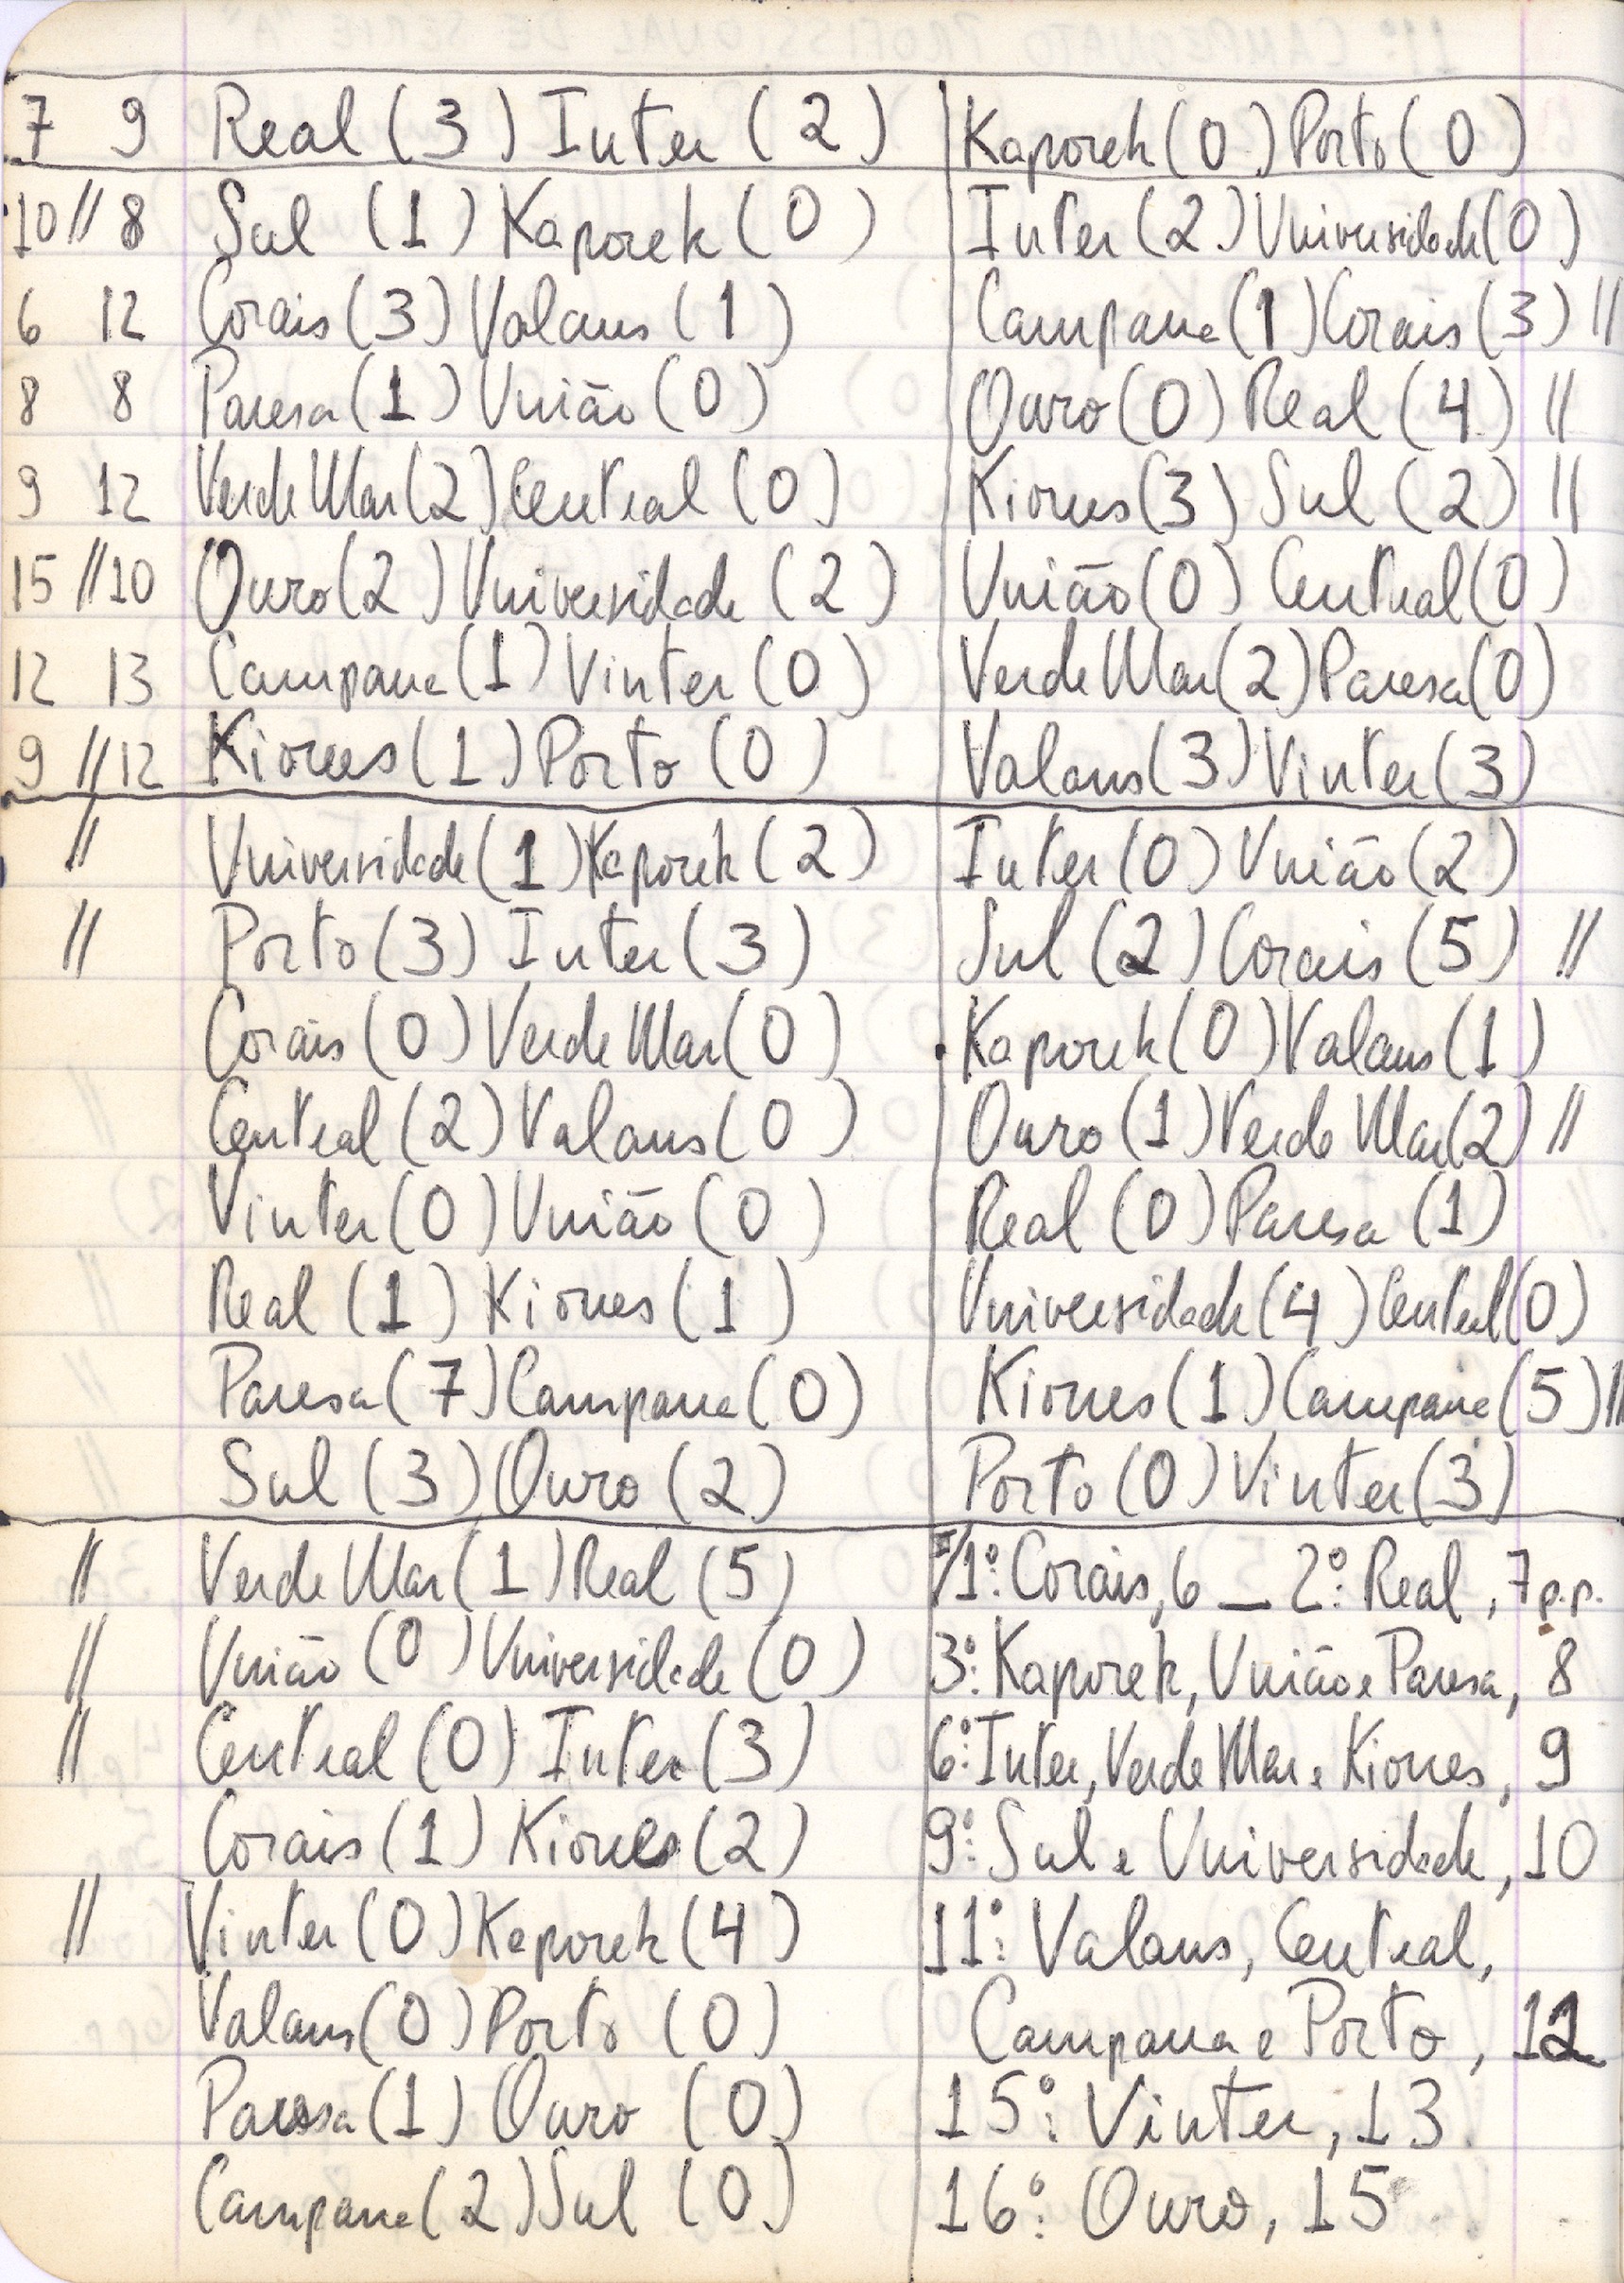 7 9 Real (3) Inter (2) Kaporek (0) Porto (0)
10 // 8 Sul (1) Kaporek (0) Inter (2) Universidade (0)
6 12 Corais (3) Valans (1) Campana (1) Corais (3) //
8 8 Paresa (1) União (0) Ouro (0) Real (4) //
9 12 Verde Mar (2) Central (0) Kiones (3) Sul (2) //
15 // 10 Ouro (2) Universidade (2) União (0) Central (0)
12 13 Campana (1) Vinter (0) Verde Mar (2) Paresa (0)
9 // 12 Kiones (1) Porto (0) Valans (3) Vinter (3)
// Universidade (1) Kaporek (2) Inter (0) União (2)
// Porto (3) Inter (3) Sul (2) Corais (5) //
Corais (0) Verde Mar (0) Kaporek (0) Valans (1)
Central (2) Valans (0) Ouro (1) Verde Mar (2) //
Vinter (0) União (0) Real (0) Paresa (1)
Real (1) Kiones (1) Universidade (4) Central (0)
Paresa (7) Campana (0) Kiones (1) Campana (5) //
Sul (3) Ouro (2) Porto (0) Vinter (3)
// Verde Mar (1) Real (5) 1º: Corais, 6 _ 2º: Real, 7 p.p.
// União (0) Universidade (0) 3º: Kaporek, União e Paresa, 8
// Central (0) Inter (3) 6º: Inter, Verde Mar e Kiones, 9
Corais (1) Kiones (2) 9º: Sul e Universidade, 10
// Vinter (0) Kaporek (4) 11º: Valans, Central,
Valans (0) Porto (0) Campana e Porto, 12
Paresa (1) Ouro (0) 15º: Vinter, 13
Campana (2) Sul (0) 16º: Ouro, 15